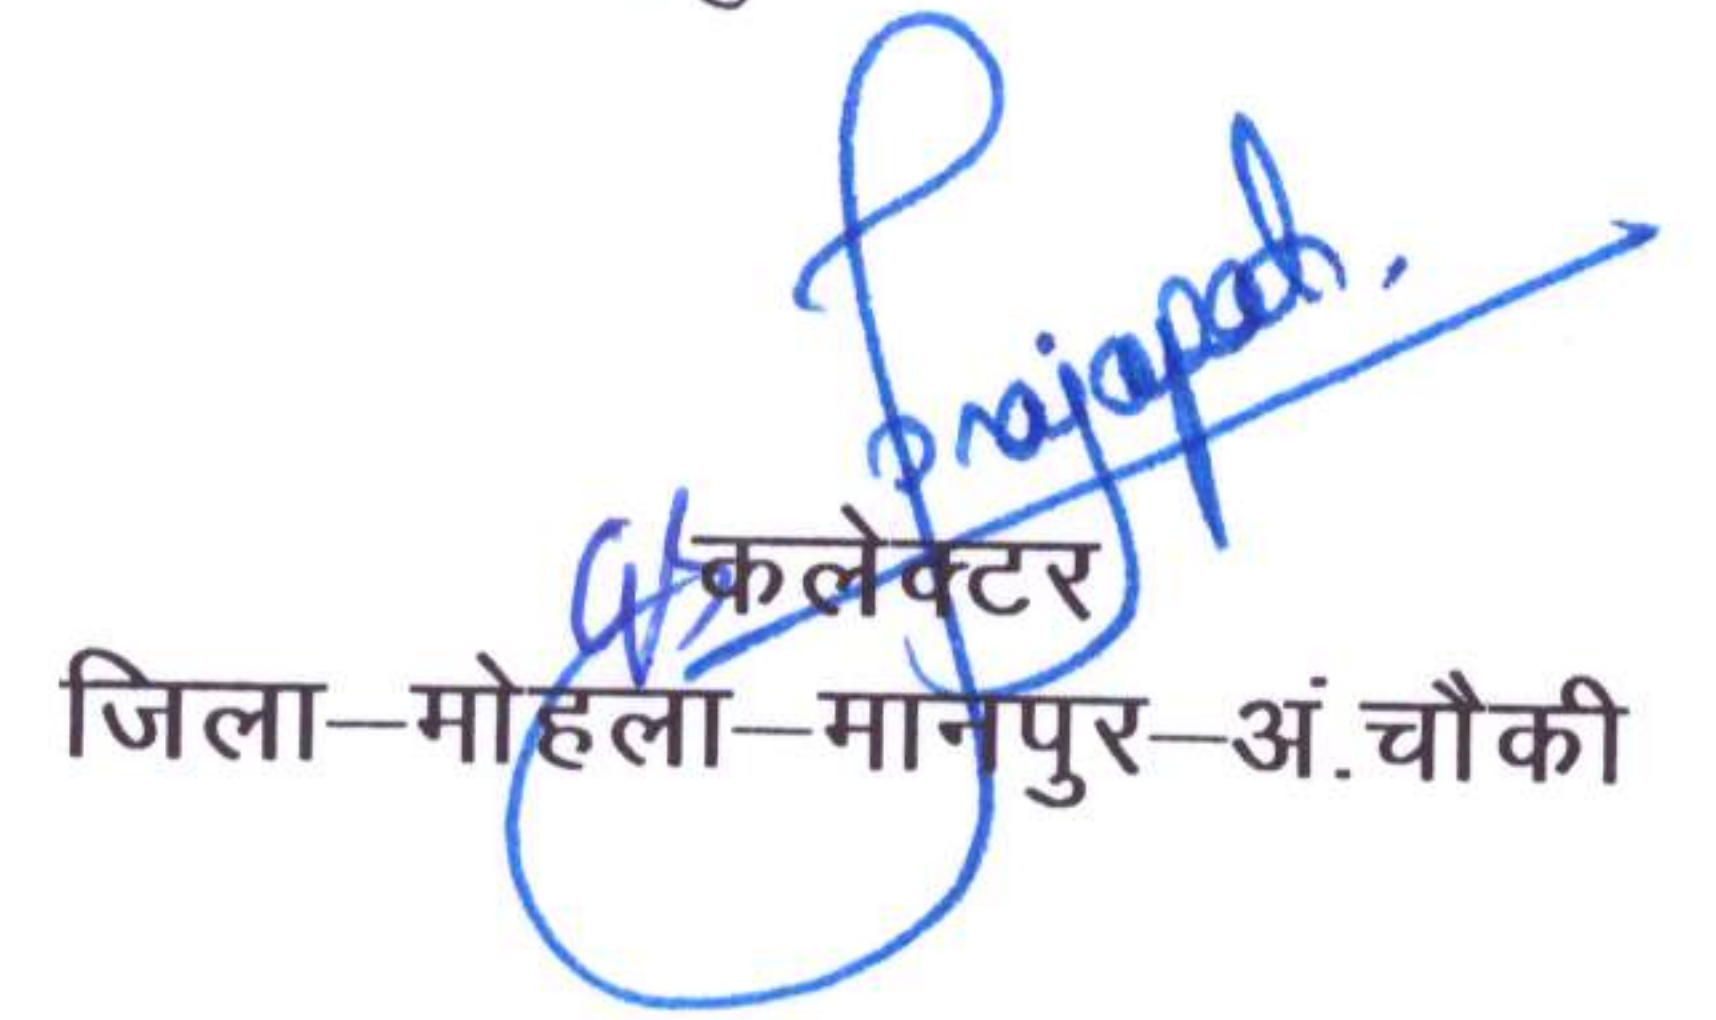 Prajapati.
कलेक्टर
जिला–मोहला–मानपुर–अं.चौकी